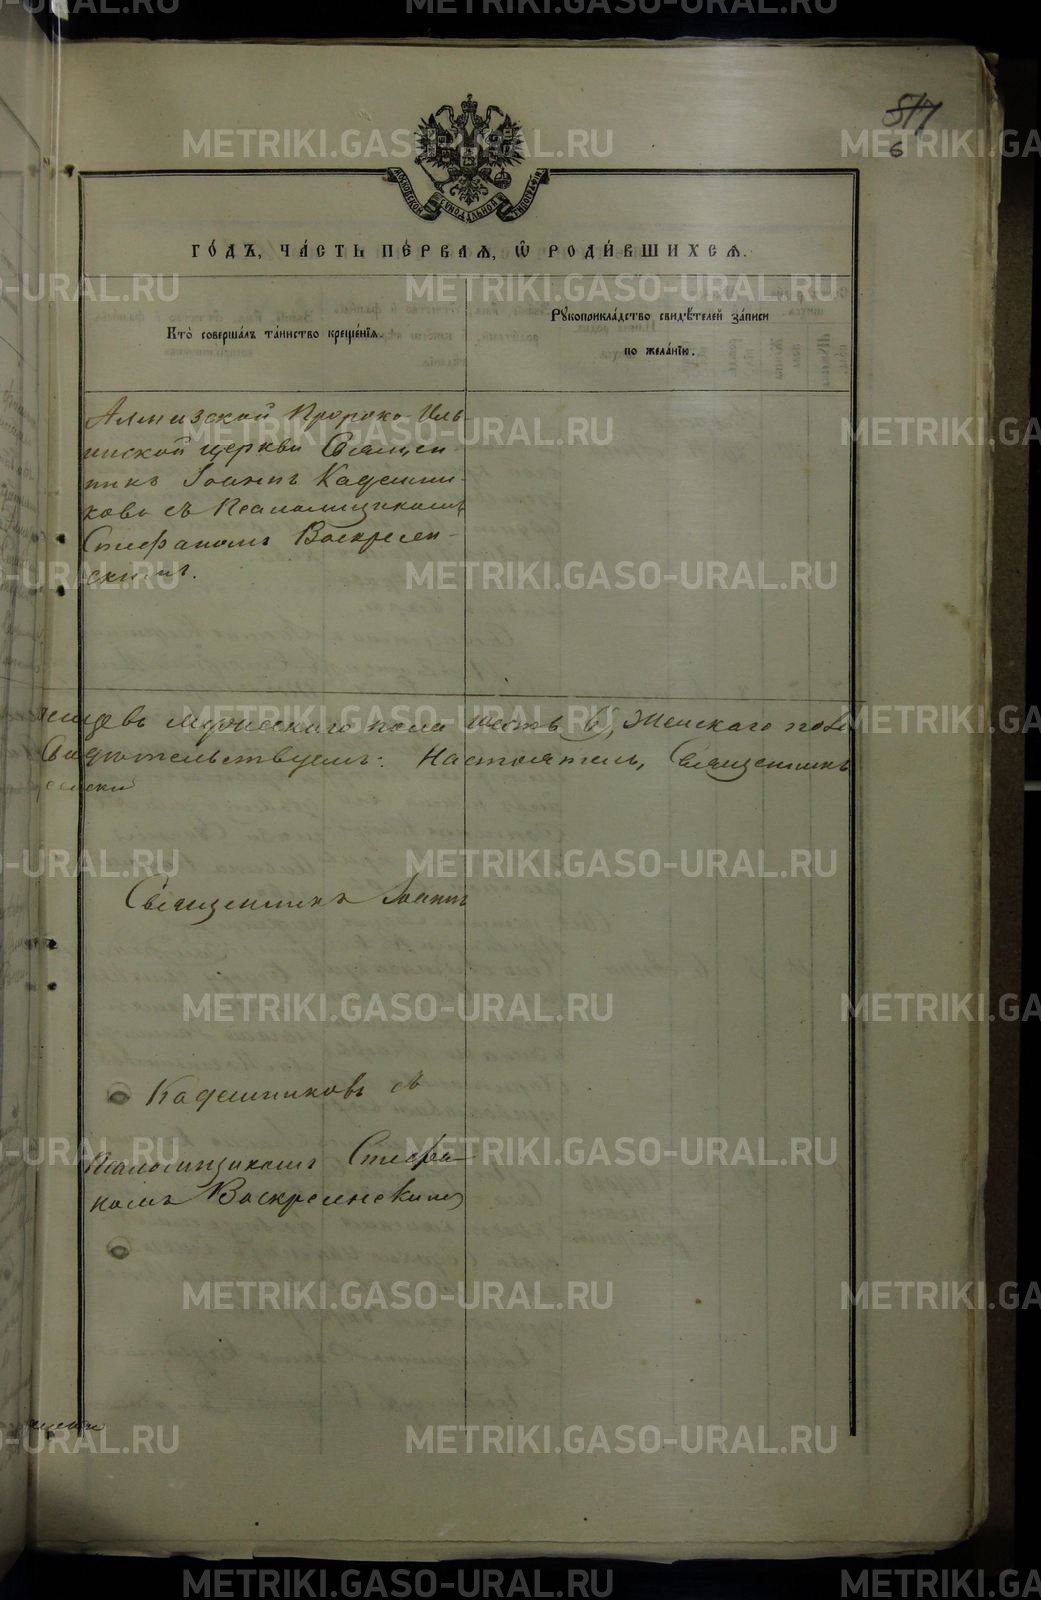 METRIKI.GASO-URAL.RU
517
6
МОСКОВСКОЙ СѴНОДАЛЬНОЙ ТИПОГРАФІИ
ГО́ДЪ, ЧА́СТЬ ПЕ́РВАЯ, Ѿ РОДИ́ВШИХСЯ.
Кто̀ соверша́лъ та́инство креще́нїѧ.
Рꙋкоприкла́дство свидѣ́телей за́писи
по жела́нїю.
Пророко-Иль-
инской церкви Священ-
никъ Іоаннъ Кадешни-
ковъ съ Псаломщикомъ
Стефаномъ Воскресен-
скимъ.
мужескаго пола шесть (6), Женскаго пола
Свидѣтельствуемъ: Настоятель, Священникъ
Священникъ Іоаннъ
Кадешниковъ съ
Псаломщикомъ Стефа-
номъ Воскресенскимъ